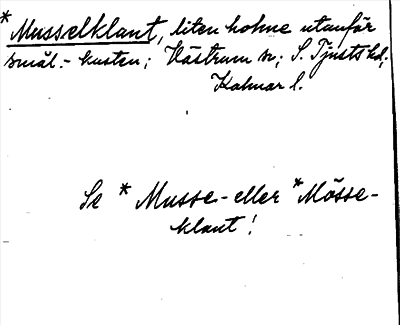 * Musselklant, liten holme utanför
smål.- kusten; Västrum sn; S. Tjusts hd;
Kalmar l.
Se * Musse- eller * Mösse-
klant!